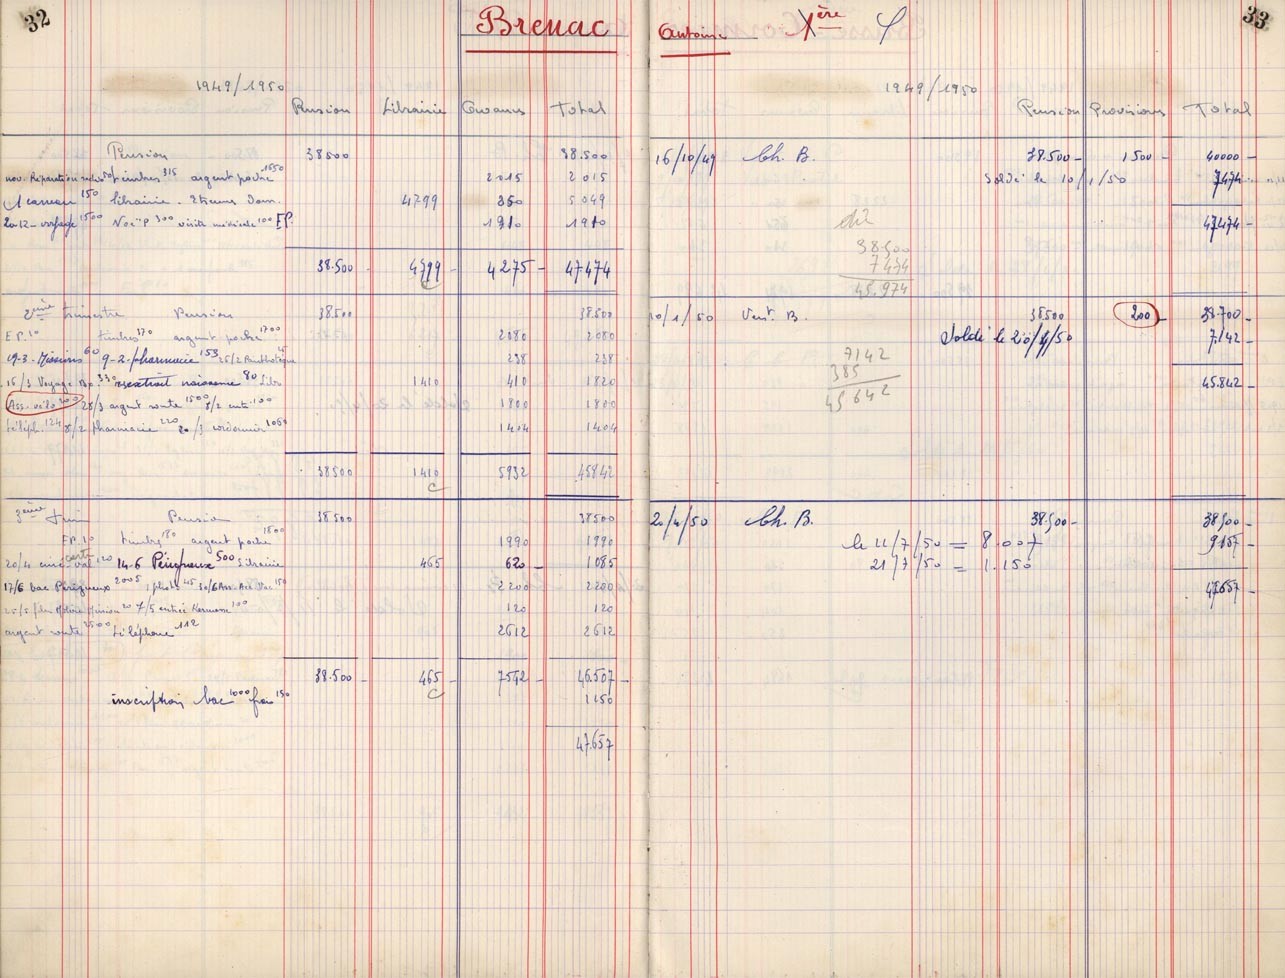 32
Brenac
1949/1950
Pension Librairie Total
Pension 38500 38.500
timbres 315 argent poche 1550 2015 2015
150 librairie - 4799 5049
1500 Noël 300 visite médicale 100 E.P. 1910 1910
38.500 - 4799 - 4275 - 47474
c
2ème trimestre Pension 38500 38.500
E P. 10 timbres 370 argent poche 1700 2080 2080
19-3. Missions 60 9-2. pharmacie 153 238 238
15/3 Voyage 330 extrait naissance 80 1410 410 1820
200 28/3 argent route 1500 100 1800 1800
téléph. 124 8/2 pharmacie 220 20/3 cordonnier 1060 1404 1404
38500 1410 5932 45842
c
3ème Pension 38.500 38500
E.P. 10 timbres 80 argent poche 1800 1990 1990
20/4 120 14-6 Périgueux 500 Librairie 465 620 - 1085
17/6 bac Périgueux 2005 photo 45 30/6 150 2200 2200
25/5 20 7/5 entrée Kermesse 100 120 120
argent route 2500 téléphone 112 2612 2612
38.500 - 465 - 7542 - 46.507 -
c
inscription bac 1000 frais 150 1150
47.657
33
Antoine 1ère
1949/1950
Pension Provisions Total
16/10/49 Ch. B. 38.500 - 1500 - 40000 -
Soldé le 10/1/50 7474 -
47474 -
38.500
7474
45.974
10/1/50 Vent. B. 38500 200 - 38.700 -
Soldé le 20/4/50 7.142 -
7142
385
45642
45.842 -
20/4/50 Ch. B. 38.500 - 38,500 -
le 11/7/50 = 8.007 9157 -
21/7/50 = 1.150
47657 -